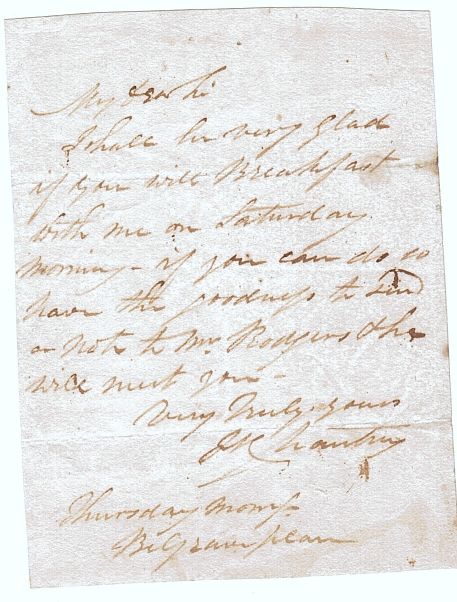 My dear Sir
I shall be very glad
if you will Breakfast
with me on Saturday
morning - if you can do so
have the goodness to send
a note to Mr. Rodgers & he
will meet you -
Very Truly yours
F Chantrey
Thursday Morng
Belgrave place